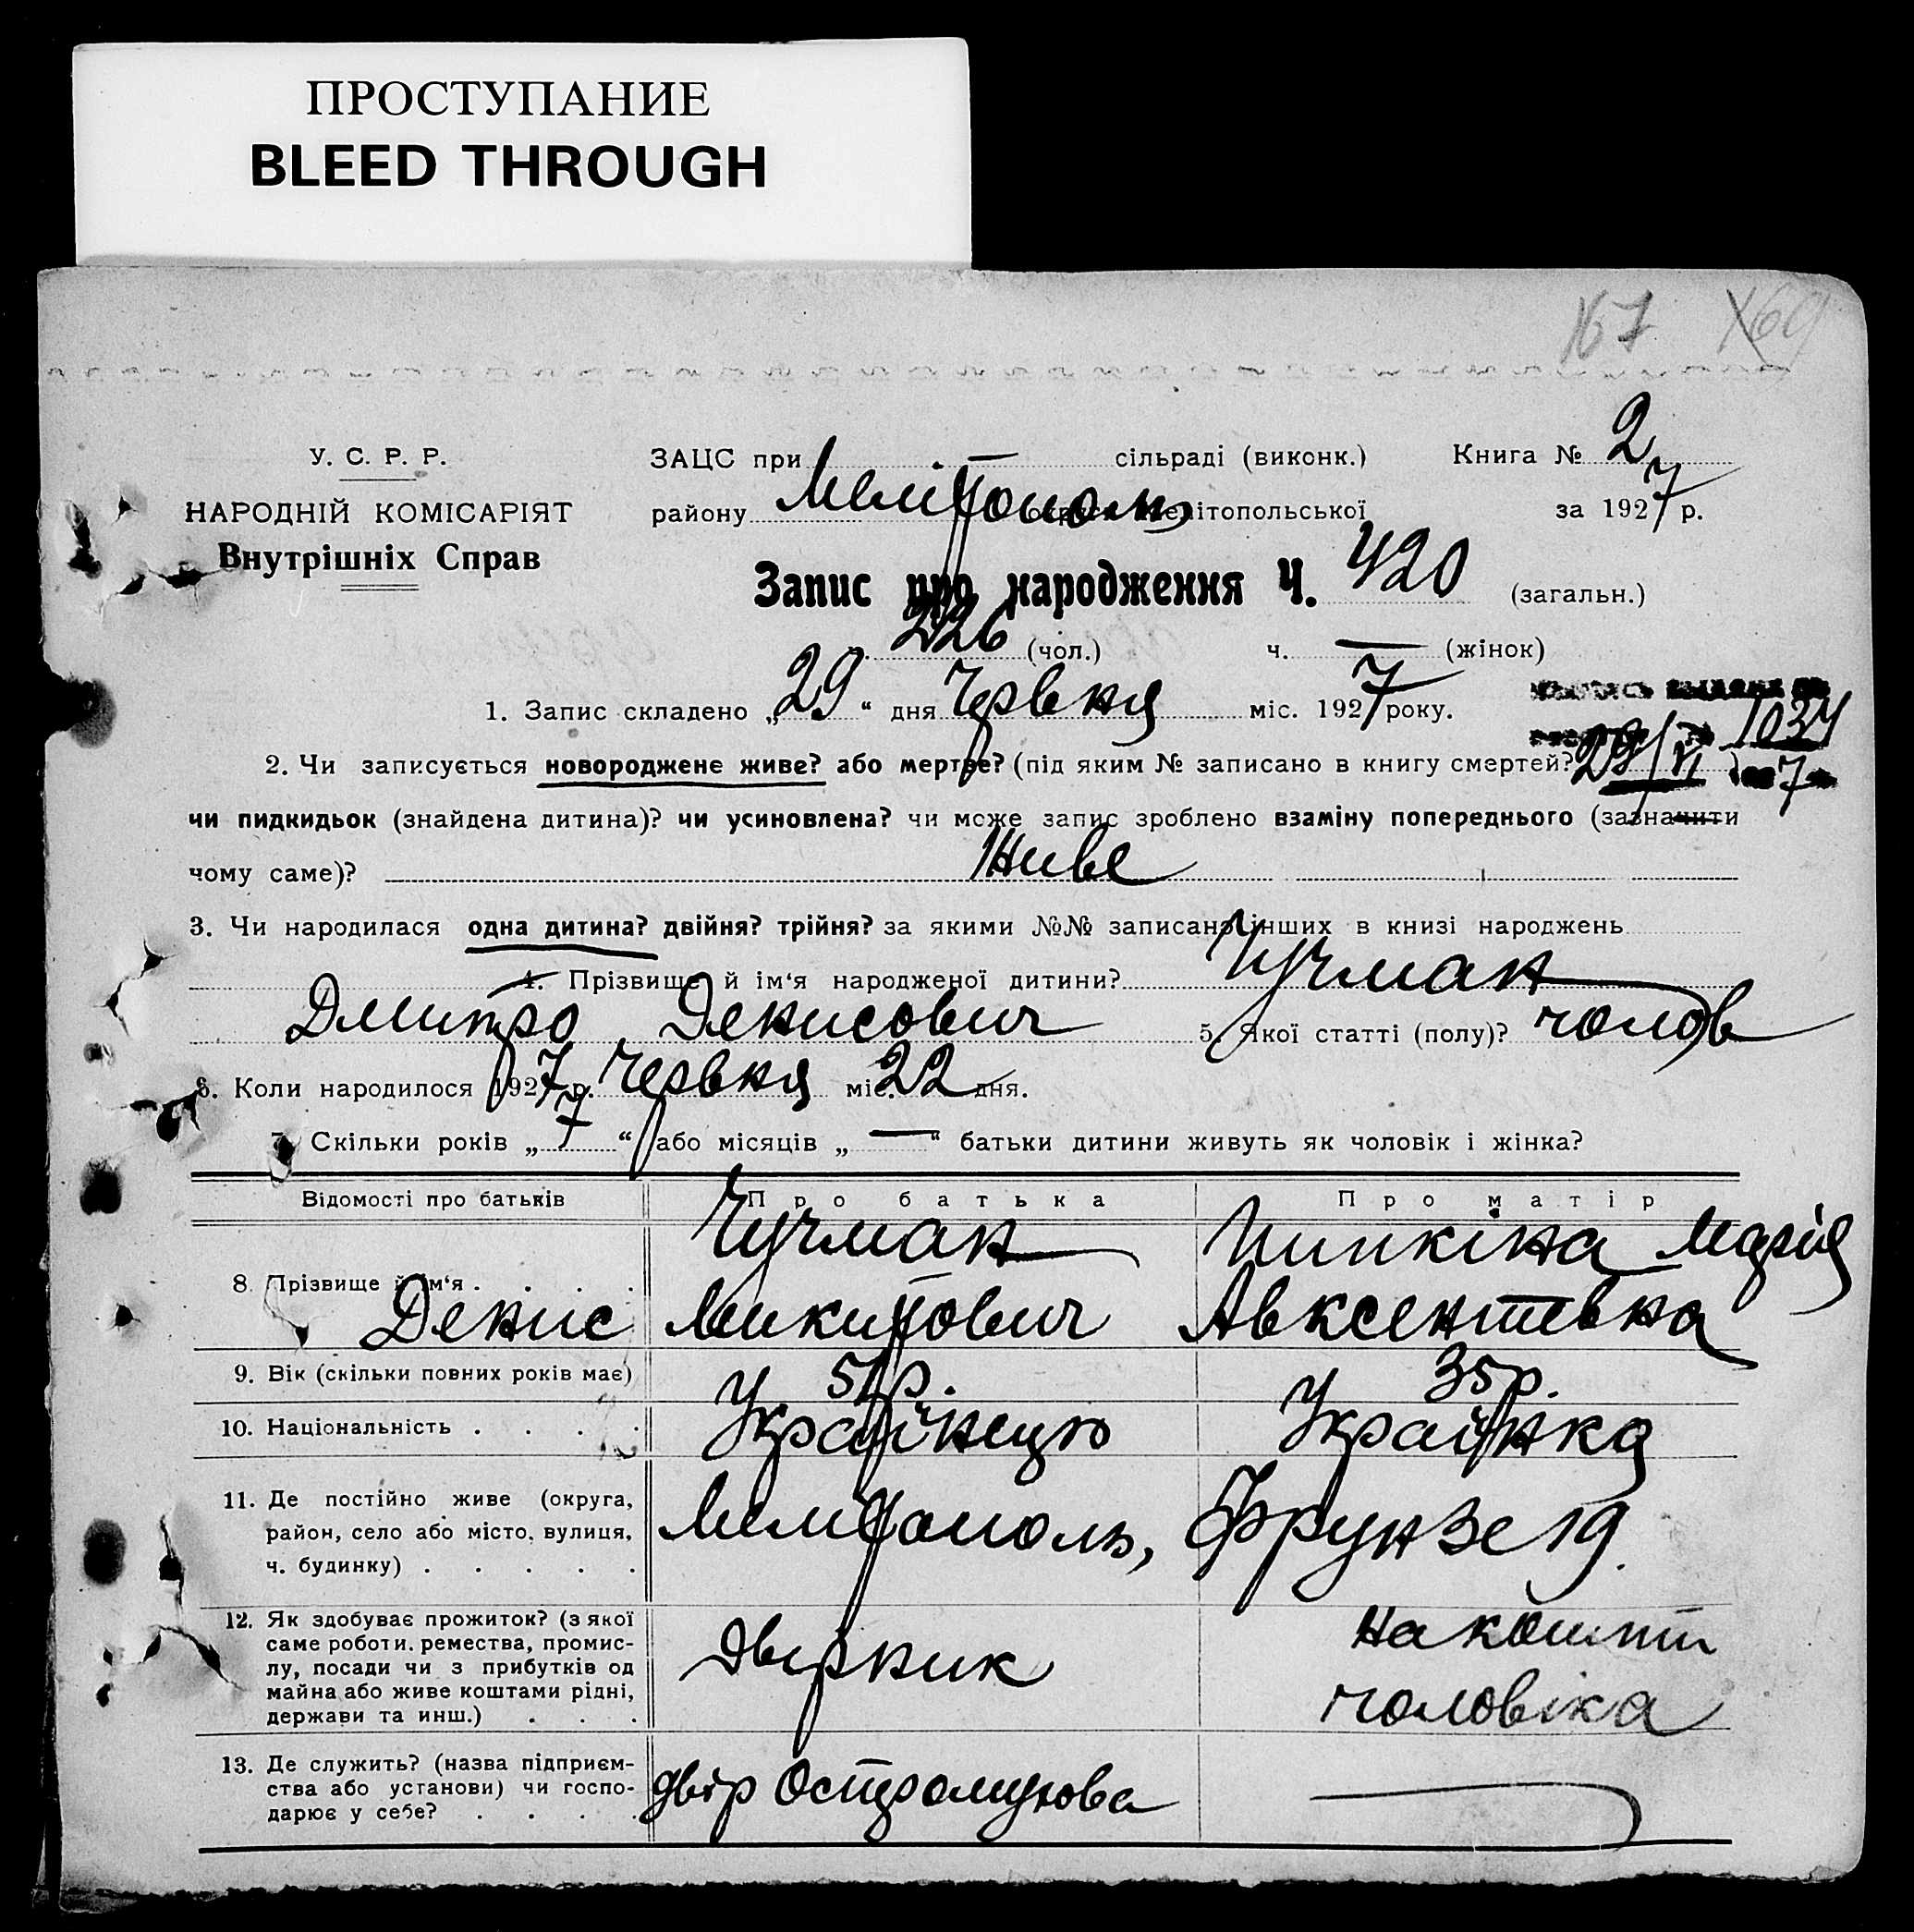 ПРОСТУПАНИЕ
BLEED THROUGH
167 160
У. С. Р. Р. ЗАЦС при Мелітополь сільраді (виконк.) Книга № 2
НАРОДНІЙ КОМІСАРІЯТ району округи Мелітопольської за 1927 р.
Внутрішніх Справ
Запис про народження Ч. 420 (загальн.)
226 (чол.) ч. — (жінок)
1. Запис складено „29“ дня Червня міс. 1927 року.
1034
2. Чи записується новороджене живе? або мертве? (під яким № записано в книгу смертей? 29/VI 7
чи пидкидьок (знайдена дитина)? чи усиновлена? чи може запис зроблено взаміну попереднього (зазначити
чому саме)? Живе
3. Чи народилася одна дитина? двійня? трійня? за якими №№ записано інших в книзі народжень
4. Прізвище й ім‘я народженої дитини? Чучман
Дмитро Денисович 5. Якої статті (полу)? чолов
6. Коли народилося 1927 р. Червня міс. 22 дня.
7. Скільки років „7“ або місяців „—“ батьки дитини живуть як чоловік і жінка?
Відомості про батьків Про батька Про матір
Чучман Пипкіна Марія
8. Прізвище й ім‘я . . . .
Денис Микитович Авксентевна
9. Вік (скільки повних років має) 51р. 35р.
10. Національність . . . . Українець Українка
11. Де постійно живе (округа,
район, село або місто, вулиця, Мелітополь, Фрунзе 19.
ч. будинку) . . . . .
12. Як здобуває прожиток? (з якої
саме роботи, ремества, промис- на кошти
лу, посади чи з прибутків од двірник
майна або живе коштами рідні, чоловіка
держави та инш.) . . .
13. Де служить? (назва підприєм-
ства або установи) чи госпо- двір
дарює у себе? . . . .